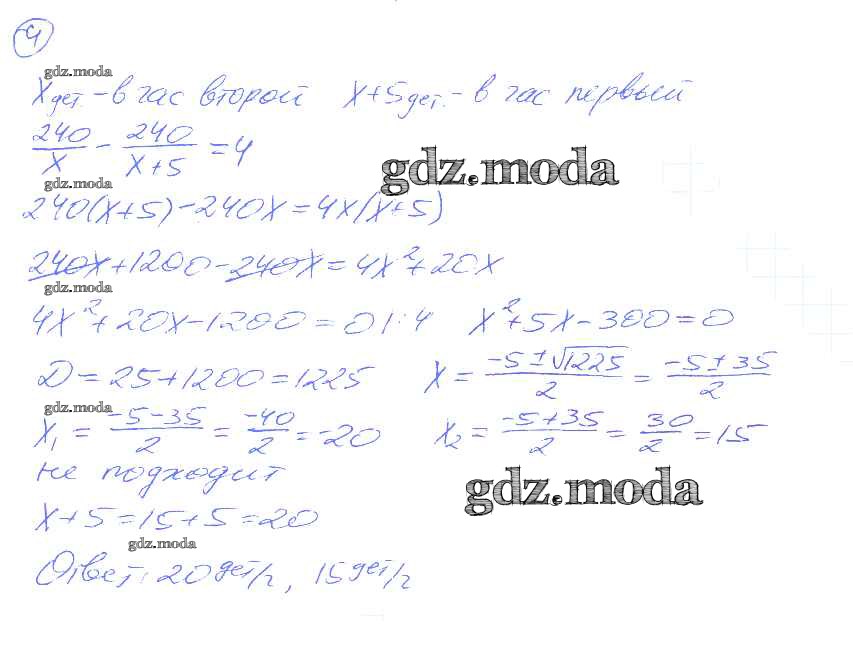 4
gdz.moda
x дет. - в час второй x+5 дет. - в час первый
240/x - 240/(x+5) = 4
gdz.moda
gdz.moda
240(x+5)-240x=4x(x+5)
240x+1200-240x=4x²+20x
gdz.moda
4x²+20x-1200=0 |:4 x²+5x-300=0
D=25+1200=1225 x = (-5±√1225)/2 = (-5±35)/2
gdz.moda
x₁ = (-5-35)/2 = -40/2 = -20 x₂ = (-5+35)/2 = 30/2 = 15
не подходит
gdz.moda
x+5=15+5=20
gdz.moda
Ответ: 20 дет/г, 15 дет/г